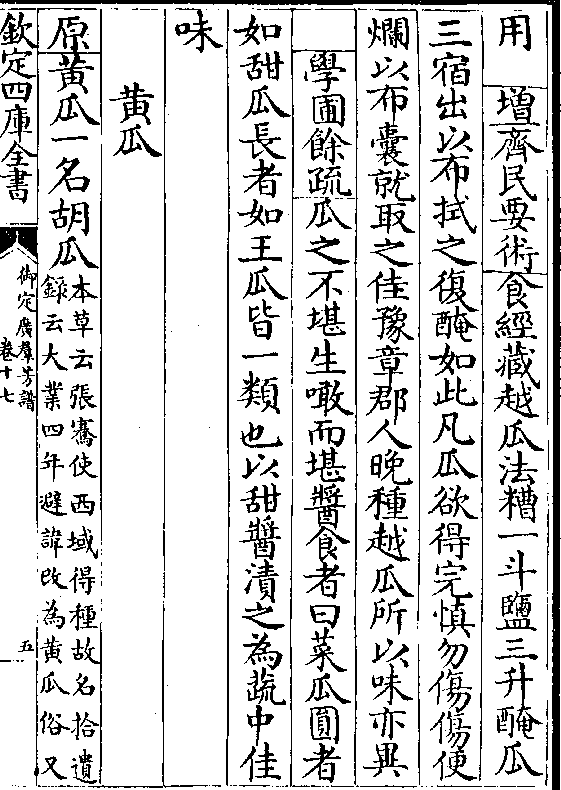 用　増齊民要術食經藏越瓜法糟一斗鹽三升醃瓜
三宿出以布拭之復醃如此凡瓜欲得完慎勿傷傷便
爛以布囊就取之佳豫章郡人晚種越瓜所以味亦異
學圃餘疏瓜之不堪生噉而堪醬食者曰菜瓜圓者
如甜瓜長者如王瓜皆一類也以甜醬漬之為蔬中佳
味
黄瓜
原黄瓜一名胡瓜
本草云張騫使西域得種故名拾遺
録云大業四年避諱改為黄瓜俗又
欽定四庫全書
御定廣羣芳譜
卷十七
五